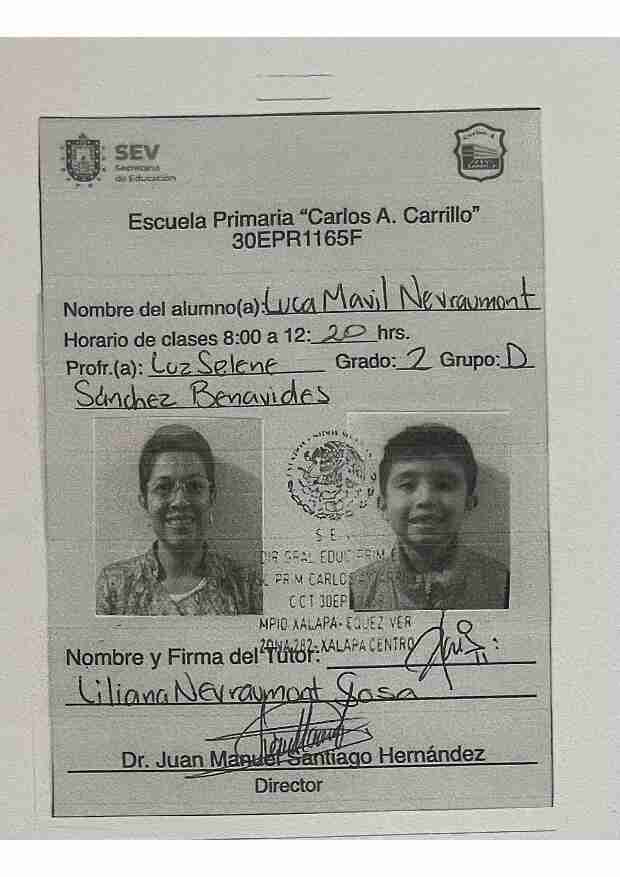 SEV
Secretaría
de Educación
Escuela Primaria "Carlos A. Carrillo"
30EPR1165F
Nombre del alumno(a): Luca Mavil Nevraumont
Horario de clases 8:00 a 12: 20 hrs.
Profr.(a): Luz Selene Grado: 2 Grupo: D
Sánchez Benavides
DIR GRAL EDUC PRIM E
PRIM CARLOS A CARR
CCT 30EP
MPIO XALAPA- EQUEZ VER
ZONA 282-XALAPA CENTRO
Nombre y Firma del Tutor:
Liliana Nevraumont Sosa
Dr. Juan Manuel Santiago Hernández
Director